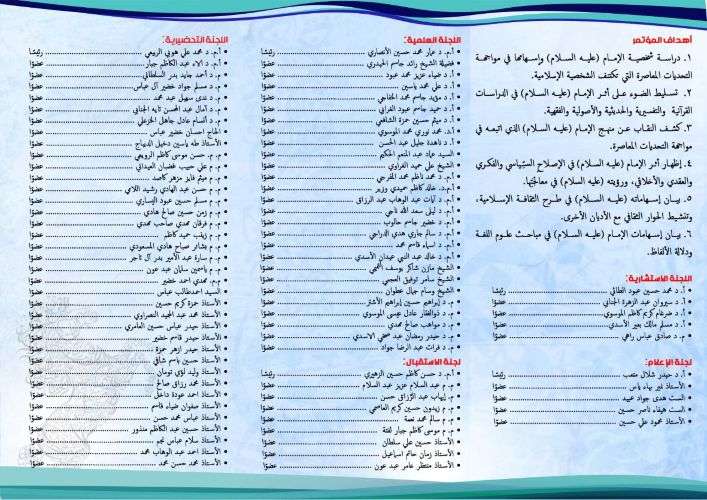 أهداف المؤتمر
١. دراسة شخصية الإمام (عليه السلام) وإسهامها في مواجهة
التحديات المعاصرة التي تكتنف الشخصية الإسلامية.
٢. تسليط الضوء على أثر الإمام (عليه السلام) في الدراسات
القرآنية والتفسيرية والحديثية والأصولية والفقهية.
٣. كشف النقاب عن منهج الإمام (عليه السلام) الذي اتبعه في
مواجهة التحديات المعاصرة.
٤. إظهار أثر الإمام (عليه السلام) في الإصلاح السياسي والفكري
والعقدي والأخلاقي، ورؤيته (عليه السلام) في معالجتها.
٥. بيان إسهاماته (عليه السلام) في طرح الثقافة الإسلامية،
وتنشيط الحوار الثقافي مع الأديان الأخرى.
٦. بيان إسهامات الإمام (عليه السلام) في مباحث علوم اللغة
ودلالة الألفاظ.
اللجنة الاستشارية:
• أ. د محمد حسين عبود الطائي رئيسًا
• أ. د سيروان عبد الزهرة الجنابي عضوًا
• أ. د ضرغام كريم كاظم الموسوي عضوًا
• أ. د مسلم مالك بعير الأسدي عضوًا
• م. د صادق عباس راهي عضوًا
لجنة الإعلام:
• أ. د حيدر شلال متعب رئيسًا
• الأستاذ نمير نهاد ياس عضوًا
• الست هدى جواد عبيد عضوًا
• الست هيفاء ناصر حسين عضوًا
• الأستاذ محمود علي حسين عضوًا
اللجنة العلمية:
• أ.م. د عمار محمد حسين الأنصاري رئيسًا
• فضيلة الشيخ رائد جاسم الحيدري عضوًا
• أ. د ضياء عزيز محمد عبود عضوًا
• أ. د علي محمد ياسين عضوًا
• أ. د مؤيد جاسم محمد الخفاجي عضوًا
• أ. د حميد جاسم عبود الغرابي عضوًا
• أ. د ميثم حسين حمزة الشافعي عضوًا
• أ.د. محمد نوري محمد الموسوي عضوًا
• أ. د ناهدة جليل عبد الحسن عضوًا
• السيد عماد عبد المنعم الحكيم عضوًا
• الشيخ علي حميد الغراوي عضوًا
• أ.م. د محمد ناظم محمد المفرجي عضوًا
• أ.م.د. خالد كاظم حميدي وزير عضوًا
• أ.م. د آيات عبد الوهاب عبد الرزاق عضوًا
• أ.م. د ليلى سعد الله ناجي عضوًا
• أ.م. د خضير جاسم حالوب عضوًا
• أ.م. د سالم جاري هدي الدراجي عضوًا
• أ.م. د اسماء قاسم محمد عضوًا
• أ.م.د. خالد عبد النبي عيدان الأسدي عضوًا
• الشيخ مازن شاكر يوسف التميمي عضوًا
• الشيخ سامر توفيق العجمي عضوًا
• الشيخ وسام جمال عطوان عضوًا
• م. د إبراهيم حسين إبراهيم الأشتر عضوًا
• م. د ذوالفقار عادل عيسى الموسوي عضوًا
• م. د مواهب صالح مهدي عضوًا
• م. د حيدر رمضان عبد ضحي الأسدي عضوًا
• م. د فرات عبد الرضا جواد عضوًا
لجنة الاستقبال:
• أ.م. د حسن كاظم حسين الزهيري رئيسًا
• م. م عبد السلام عزيز عبد السلام عضوًا
• م. إيهاب عبد الرزاق حسن عضوًا
• م. م زيدون حسين كريم العاصي عضوًا
• م. م سالم محمد نعمة عضوًا
• م. م موسى كاظم جبار لفتة عضوًا
• الأستاذ حسين علي سلطان عضوًا
• الأستاذ زمان حاتم اسماعيل عضوًا
• الأستاذ منتظر عامر عبد عون عضوًا
اللجنة التحضيرية:
• أ.م. د محمد علي هوبي الربيعي رئيسًا
• أ.م. د آلاء عبد الكاظم جبار عضوًا
• م. د أحمد جايد بدر السلطاني عضوًا
• م. د مسلم جواد خضير آل عباس عضوًا
• م. د ندى سهيل عبد محمد عضوًا
• م. د آمال عبد المحسن تايه الجنابي عضوًا
• م. د أنسام عادل جاهل الخزعلي عضوًا
• الحاج احسان خضير عباس عضوًا
• الأستاذ طه ياسين دخيل الدهاج عضوًا
• م. م حسن موسى كاظم الربيعي عضوًا
• م. م علي حبيب غضبان العيداني عضوًا
• م. م ميثم فايز مزهر كاصد عضوًا
• م. م حسن عبد الهادي رشيد اللامي عضوًا
• م. م مسلم حسين عبود اليساري عضوًا
• م. م زمن حسين صالح هادي عضوًا
• م. م فرقان مهدي صاحب مهدي عضوًا
• م. م زينب حميد كاظم عضوًا
• م. م بشار صباح هادي المسعودي عضوًا
• م. م سارة عبد الأمير بدر آل تاجر عضوًا
• م. م ياسين سلمان عبد عون عضوًا
• م. م كمدي احمد خضير عضوًا
• السيد احمدطالب عباس عضوًا
• الأستاذ حمزة كريم حسين عضوًا
• الأستاذ محمد عبد الحميد النصراوي عضوًا
• الأستاذ حيدر عباس حسين العامري عضوًا
• الأستاذ حيدر قاسم خضير عضوًا
• الأستاذ حيدر ازهر حمزة عضوًا
• الأستاذ حسين باسم شاق عضوًا
• الأستاذ وليد لؤي تومان عضوًا
• الأستاذ محمد رزاق صالح عضوًا
• الأستاذ احمد عودة داخل عضوًا
• الأستاذ صفوان ضياء قاسم عضوًا
• الأستاذ عباس محمد حسن عضوًا
• الأستاذ حسين عبد الكاظم مندور عضوًا
• الأستاذ سلام عباس نجم عضوًا
• الأستاذ احمد عبد الوهاب محمد عضوًا
• الأستاذ محمد حسن محمد عضوًا